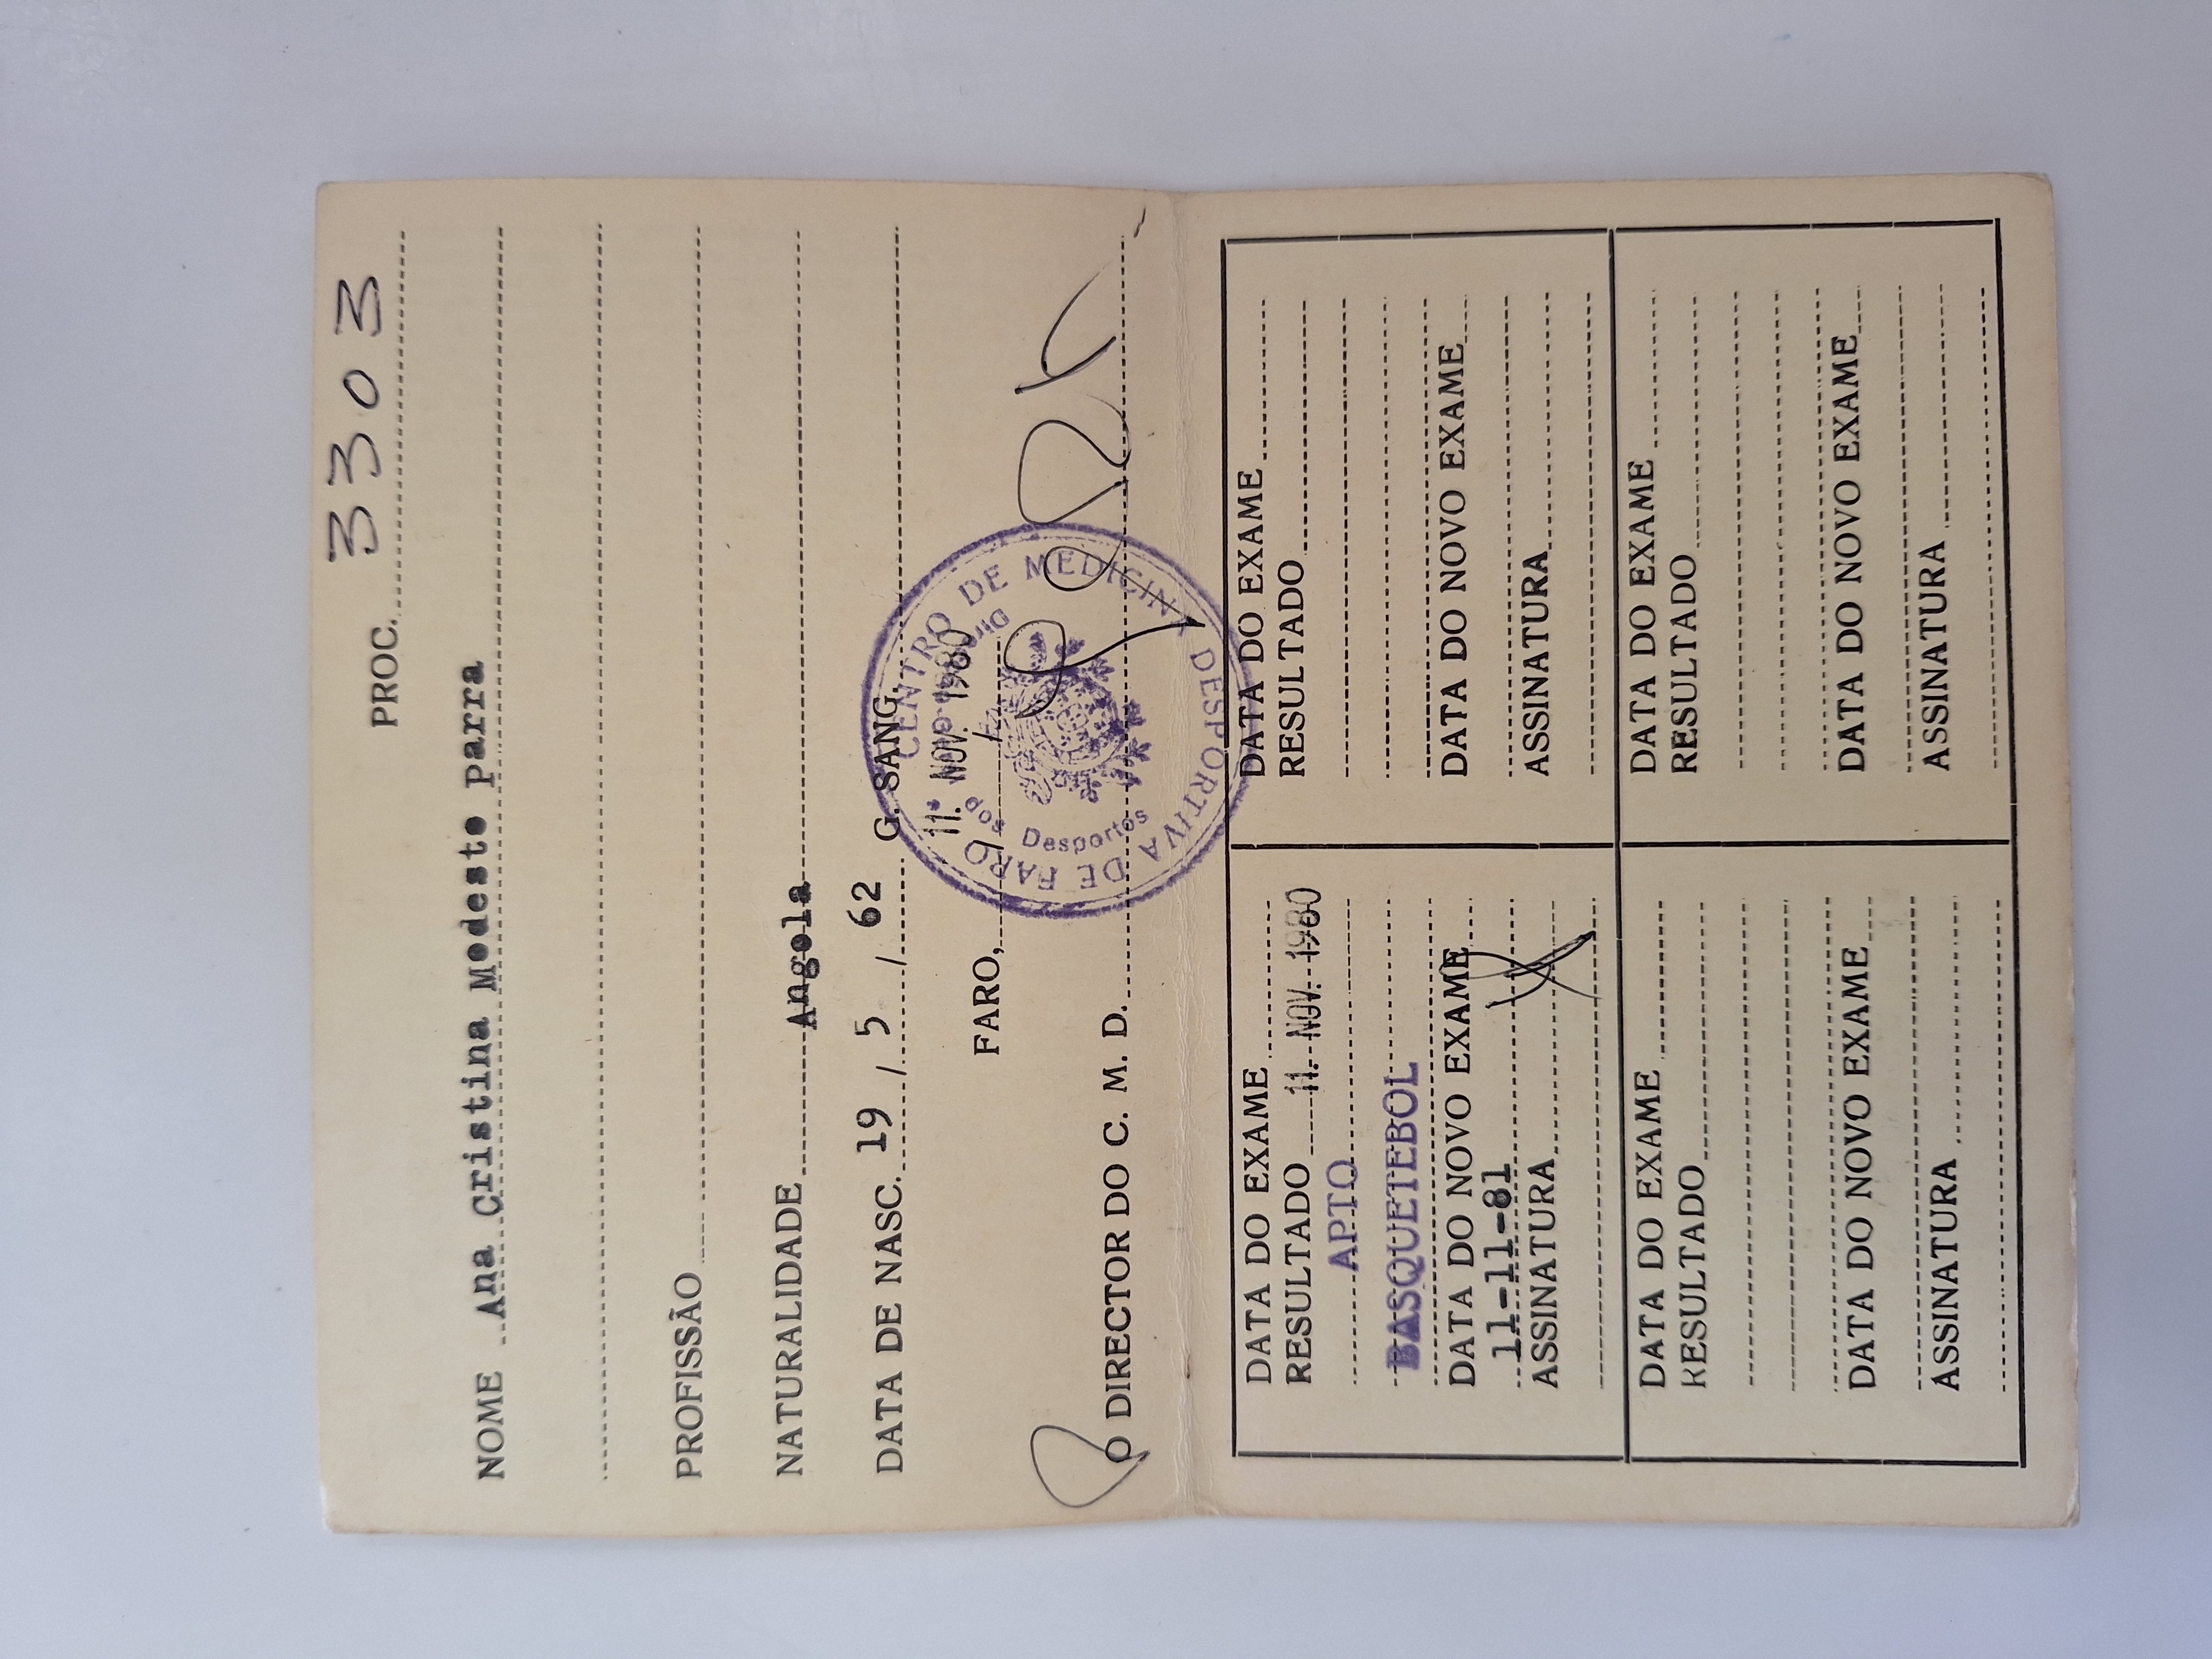 PROC. 3303
NOME Ana Cristina Modesto Parra
PROFISSÃO
NATURALIDADE Angola
DATA DE NASC. 19 / 5 / 62 G. SANG.
FARO, 11. NOV. 1980
CENTRO DE MEDICINA DESPORTIVA DE FARO
dos Desportos
O DIRECTOR DO C. M. D.
DATA DO EXAME
RESULTADO 11. NOV. 1980
APTO
BASQUETEBOL
DATA DO NOVO EXAME
11-11-81
ASSINATURA
DATA DO EXAME
RESULTADO
DATA DO NOVO EXAME
ASSINATURA
DATA DO EXAME
RESULTADO
DATA DO NOVO EXAME
ASSINATURA
DATA DO EXAME
RESULTADO
DATA DO NOVO EXAME
ASSINATURA